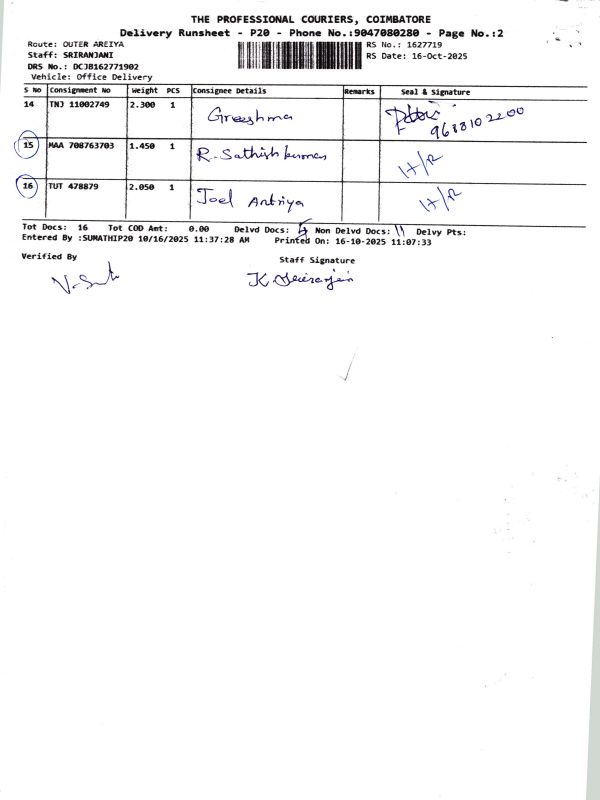 THE PROFESSIONAL COURIERS, COIMBATORE
Delivery Runsheet - P20 - Phone No.:9047080280 - Page No.:2
Route: OUTER AREIYA
RS No.: 1627719
Staff: SRIRANJANI
RS Date: 16-Oct-2025
DRS No.: DCJB162771902
Vehicle: Office Delivery
S No Consignment No Weight PCS Consignee Details Remarks Seal & Signature
14 TNJ 11002749 2.300 1 Greeshma 9688102200
15 MAA 708763703 1.450 1 R. Sathish kumar H/R
16 TUT 478879 2.050 1 Joel Antriya H/R
Tot Docs: 16 Tot COD Amt: 0.00 Delvd Docs: 5 Non Delvd Docs: 11 Delvy Pts:
Entered By :SUMATHIP20 10/16/2025 11:37:28 AM Printed On: 16-10-2025 11:07:33
Verified By
Staff Signature
K. Sriranjani